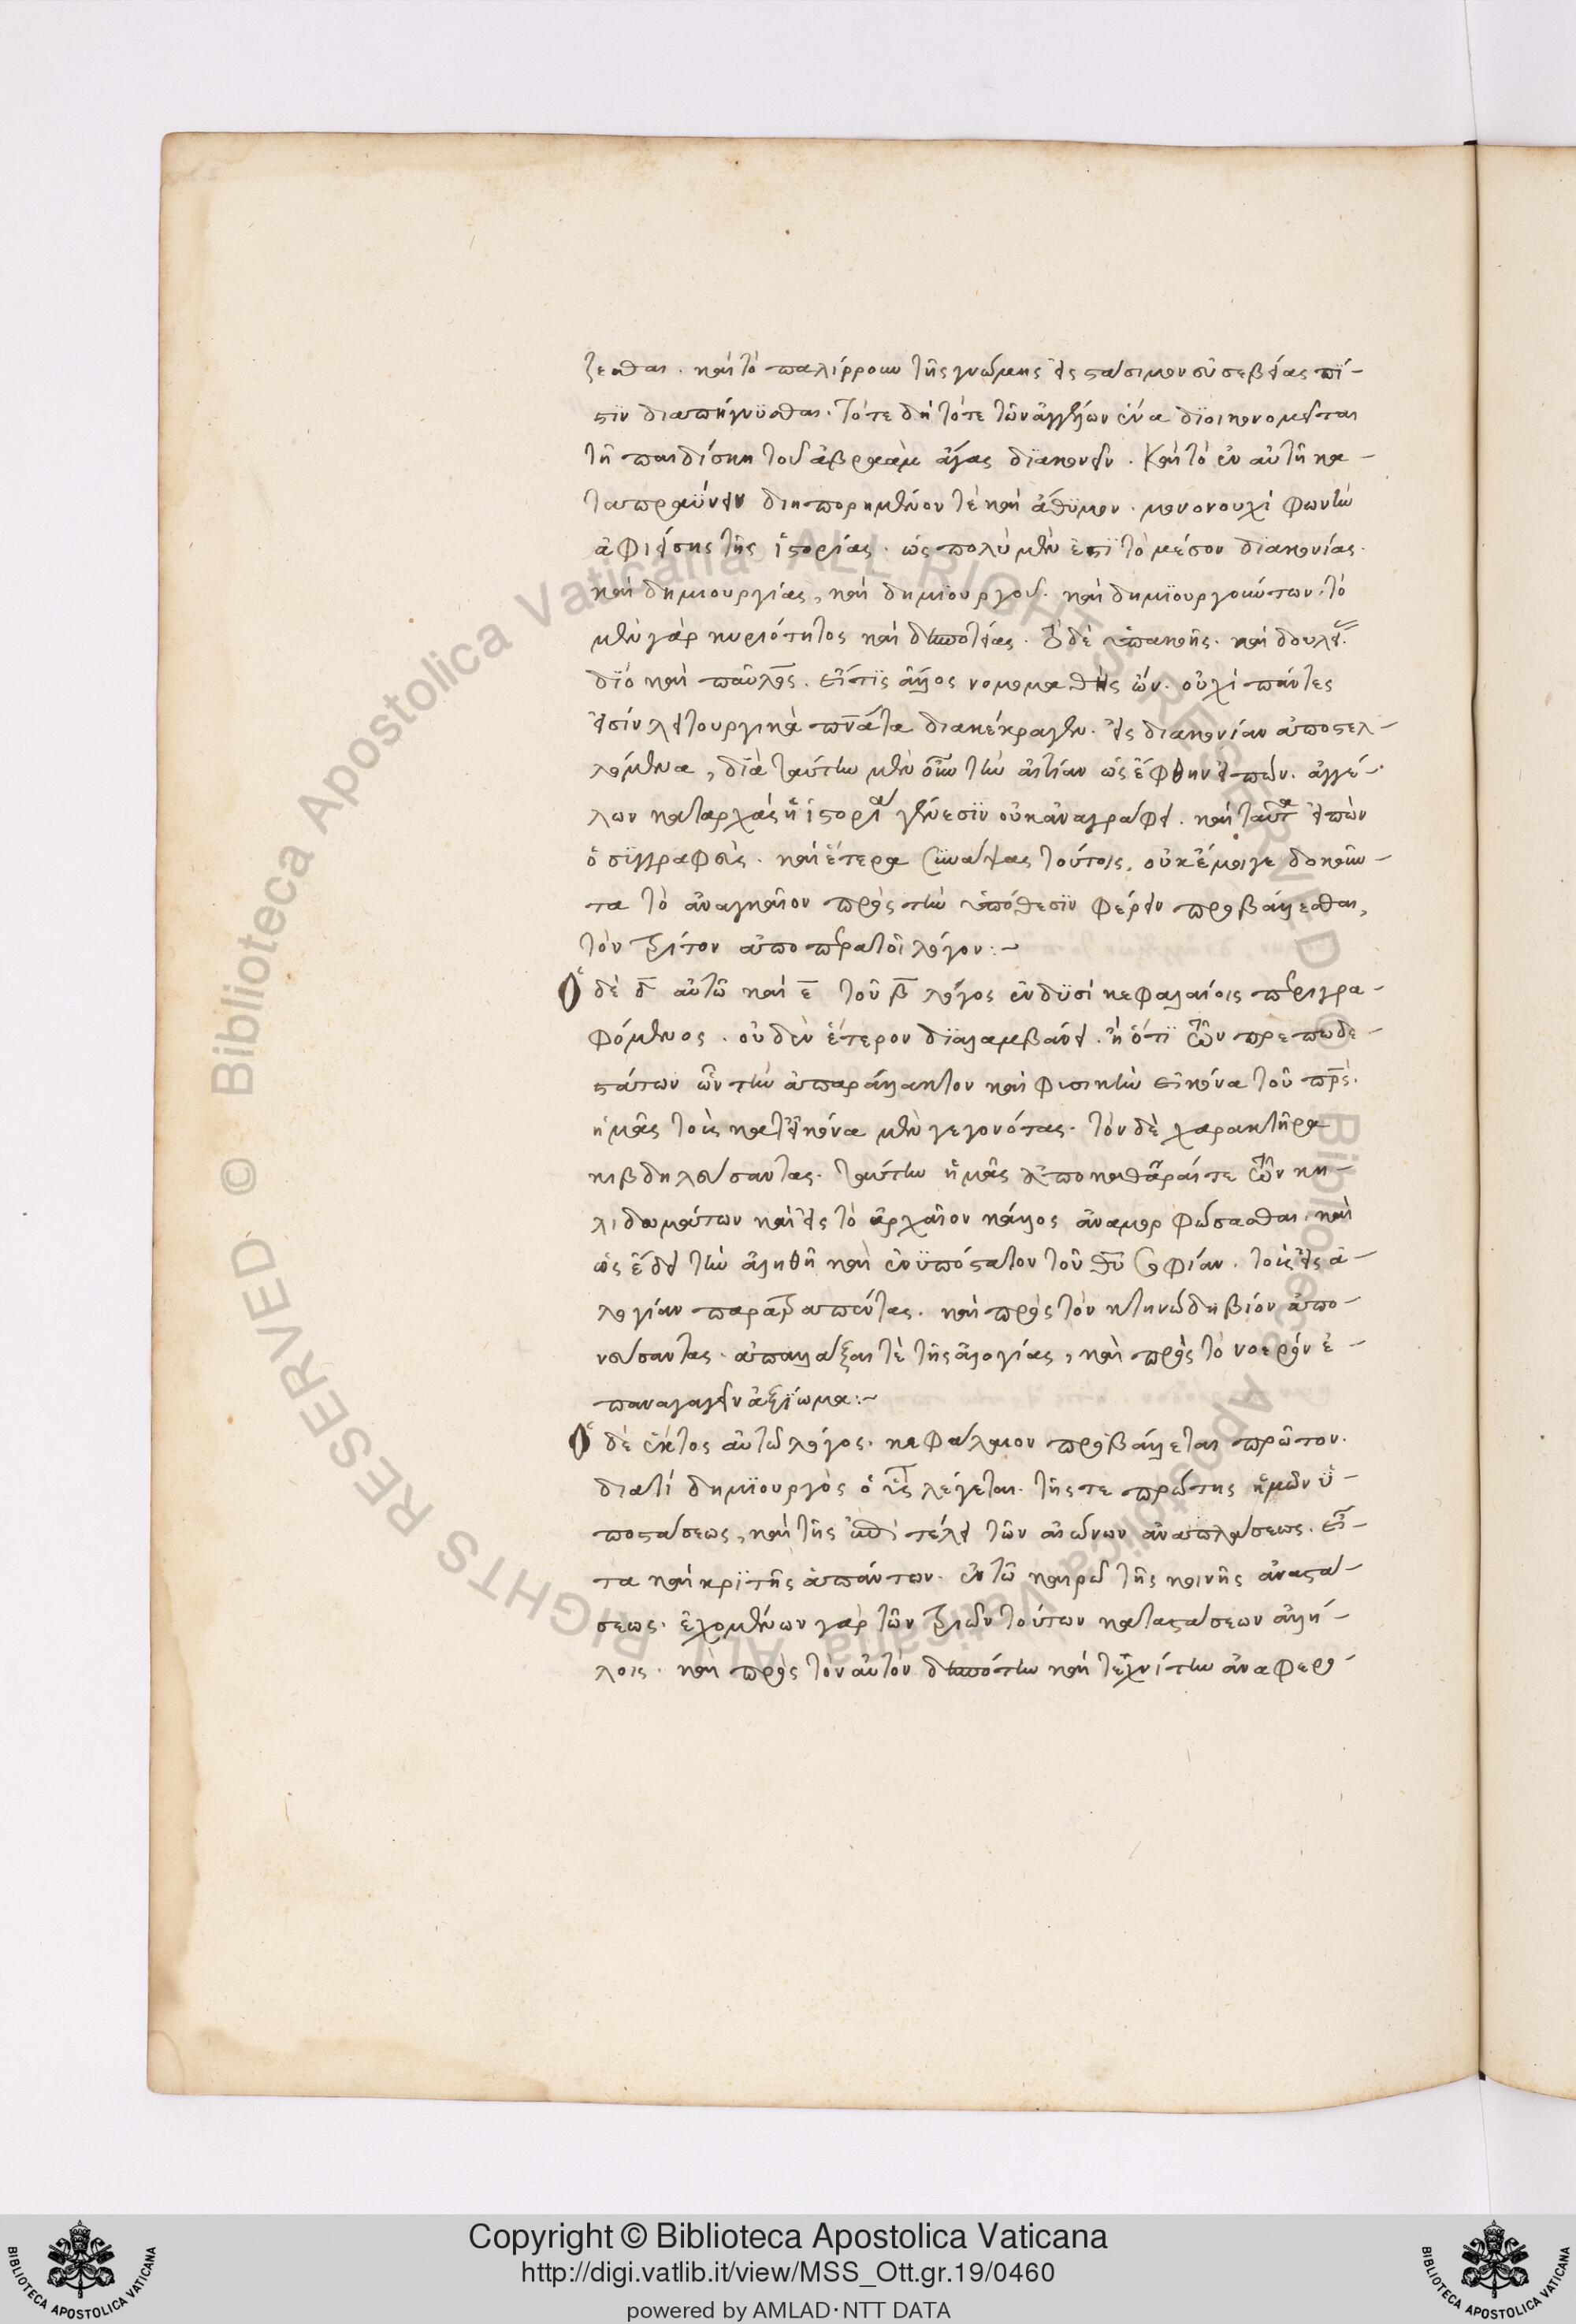 ζεσθαι. καὶ τὸ παλίρρουν τῆς γνώμης εἰς στάσιμον εὐσεβείας πί-
στϊν διαπήγνϋσθαι. τότε δὴ τότε τῶν ἀγγέλων ἕνα δϊοικονομεῖται
τῆ παιδίσκη τοῦ ἀβραὰμ ἄγας δϊακονεῖν. Καὶ τὸ ἐν αὐτῆ κα-
ταπραϋνειν διηπορημένον τὲ καὶ ἄθϋμον. μονονουχὶ φωνὴν
ἀφιείσης τῆς ἱστορίας. ὡς πολὺ μὲν ἐπῒ τὸ μέσον δϊακονίας.
καὶ δημιουργίας, καὶ δημϊουργοῦ. καὶ δημϊουργούντων. τὸ
μὲν γὰρ κυριότητος καὶ δεσποτείας. τὸ δὲ ὑπακοῆς. καὶ δουλεί
δϊὸ καὶ παῦλος. εἴτϊς ἄλλος νομομαθὴς ὤν. οὐχὶ πάντες
εἰσὶν λειτουργικὰ πν̅ατα διακέκραγεν. εἰς διακονίαν ἀποστελ-
λόμενα, δϊὰ ταύτην μὲν οὖν τὴν αἰτίαν ὡς ἔφθην εἰπών. ἀγγέ-
λων καταρχὰς ἡ ἱστορία γένεσϊν οὐκ ἀναγράφει. καὶ ταῦτα εἰπὼν
ὁ σϋγγραφεὺς. καὶ ἕτερα συνάψας τούτοις, οὐκ ἔμοιγε δοκοῦν-
τα τὸ ἀναγκαῖον πρὸς τὴν ὑπόθεσϊν φέρειν προβάλλεσθαι,
τὸν τρίτον ἀποπερατοῖ λόγον:~
Ὁ δὲ δ̅ αὐτῶ καὶ ε̅ τοῦ β̅ λόγος ἐν δϋσὶ κεφαλαίοις περιγρα-
φόμενος. οὐδὲν ἕτερον δϊαλαμβάνει. ἢ ὅτϊ τῶν πρεπωδε-
στάτων ἦν τὴν ἀπαράλλακτον καὶ φυσικὴν εἰκόνα τοῦ πρ̅ς.
ἡμᾶς τοὺς κατ' εἰκόνα μὲν γεγονότας. τὸν δὲ χαρακτῆρα
κιβδηλεύσαντας. ταύτην ἡμᾶς ἀποκαθᾶραί τε τῶν κη-
λιδωμάτων καὶ εἰς τὸ ἀρχαῖον κάλλος ἀναμορφώσασθαι. καὶ
ὡς ἔδει τὴν ἀληθῆ καὶ ἐνϋπόστατον τοῦ θυ̅ σοφίαν. τοὺς εἰς ἀ-
λογίαν παρατραπέντας. καὶ πρὸς τὸν κτηνώδη βίον ἀπο-
νεύσαντας. ἀπαλλάξαι τὲ τῆς ἀλογίας, καὶ πρὸς τὸ νοερὸν ἐ-
παναγαγεῖν ἀξίωμα:~
Ὁ δὲ ἕκτος αὐτῶ λόγος. κεφάλαιον προβάλλεται πρῶτον.
διατί δημϊουργὸς ὁ ι̅ς λέγεται. τῆς τε πρώτης ἡμῶν ὑ-
ποστάσεως, καὶ τῆς ἐπὶ τέλει τῶν αἰώνων ἀναπλάσεως. εἶ-
τα καὶ κρϊτὴς ἁπάντων. ἐν τῶ καιρῶ τῆς κοινῆς ἀναστά-
σεως. ἐχομένων γὰρ τῶν τριῶν τούτων καταστάσεων ἀλλή-
λοις. καὶ πρὸς τὸν αὐτὸν δεσπότην καὶ τεχνίτην ἀναφερο-
Copyright © Biblioteca Apostolica Vaticana
http://digi.vatlib.it/view/MSS_Ott.gr.19/0460
powered by AMLAD·NTT DATA
BIBLIOTECA APOSTOLICA VATICANA
BIBLIOTECA APOSTOLICA VATICANA
© Biblioteca Apostolica Vaticana ALL RIGHTS RESERVED © Biblioteca Apostolica Vaticana ALL RIGHTS RESERVED